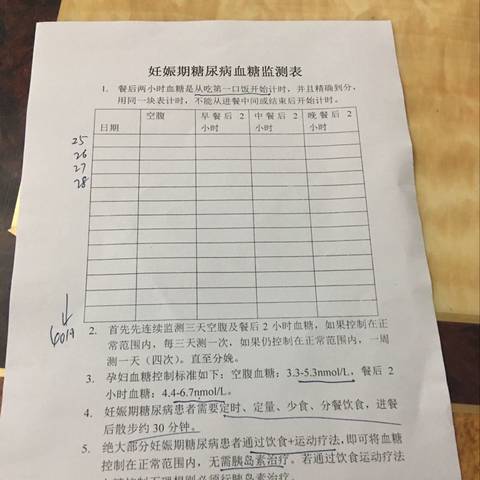 妊娠期糖尿病血糖监测表
1. 餐后两小时血糖是从吃第一口饭开始计时，并且精确到分，
用同一块表计时，不能从进餐中间或结束后开始计时。
日期 空腹 早餐后 2 小时 中餐后 2 小时 晚餐后 2 小时
25
26
27
28
2. 首先先连续监测三天空腹及餐后 2 小时血糖，如果控制在正
常范围内，每三天测一次，如果仍控制在正常范围内，一周
测一天（四次）。直至分娩。
3. 孕妇血糖控制标准如下：空腹血糖：3.3-5.3nmol/L，餐后 2
小时血糖：4.4-6.7nmol/L。
4. 妊娠期糖尿病患者需要定时、定量、少食、分餐饮食，进餐
后散步约 30 分钟。
5. 绝大部分妊娠期糖尿病患者通过饮食+运动疗法，即可将血糖
控制在正常范围内，无需胰岛素治疗。若通过饮食运动疗法